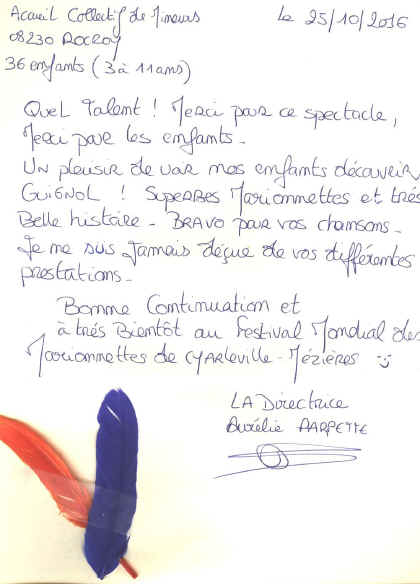 Accueil Collectif de Mineurs
Le 25/10/2016
08230 ROCROY
36 enfants (3 à 11 ans)
Quel talent ! Merci pour ce spectacle,
Merci pour les enfants.
Un plaisir de voir mes enfants découvrir
GUIGNOL ! Superbes Marionnettes et très
Belle histoire - BRAVO pour vos chansons.
Je ne suis Jamais déçue de vos différentes
prestations.
Bonne Continuation et
à très Bientôt au Festival Mondial des
Marionnettes de CHARLEVILLE-Mézières
LA Directrice
Aurélie